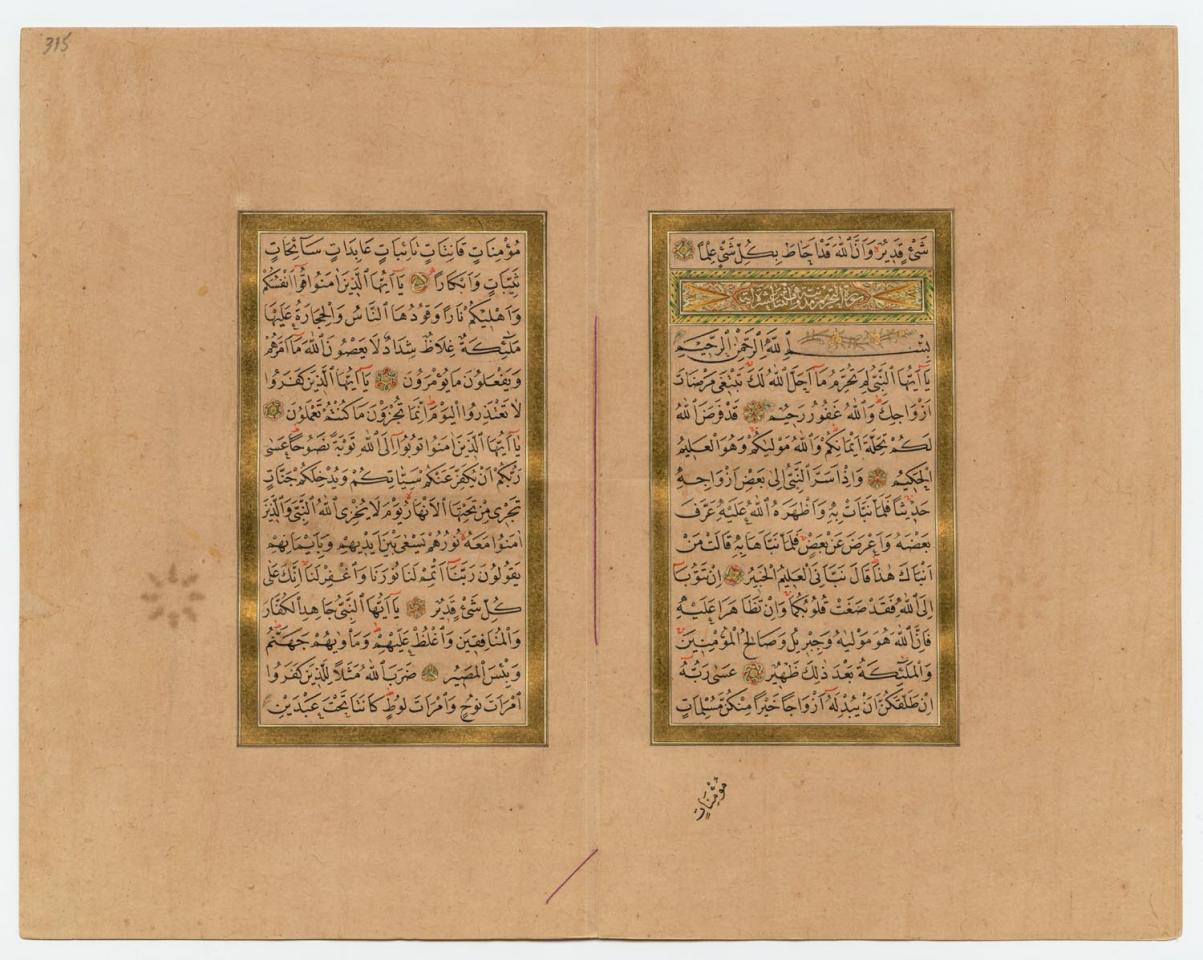 شَىْءٍ قَدِيرٌ وَاَنَّ اللّٰهَ قَدْ اَحَاطَ بِكُلِّ شَىْءٍ عِلْمًا
سورة التحريم مدنية وهى اثنتا عشرة اية
بِسْمِ اللّٰهِ الرَّحْمٰنِ الرَّحِيمِ
يَا اَيُّهَا النَّبِىُّ لِمَ تُحَرِّمُ مَا اَحَلَّ اللّٰهُ لَكَ تَبْتَغِى مَرْضَاتَ
اَزْوَاجِكَ وَاللّٰهُ غَفُورٌ رَحِيمٌ قَدْ فَرَضَ اللّٰهُ
لَكُمْ تَحِلَّةَ اَيْمَانِكُمْ وَاللّٰهُ مَوْلٰيكُمْ وَهُوَ الْعَلِيمُ
الْحَكِيمُ وَاِذْ اَسَرَّ النَّبِىُّ اِلٰى بَعْضِ اَزْوَاجِهِ
حَدِيثًا فَلَمَّا نَبَّاَتْ بِهِ وَاَظْهَرَهُ اللّٰهُ عَلَيْهِ عَرَّفَ
بَعْضَهُ وَاَعْرَضَ عَنْ بَعْضٍ فَلَمَّا نَبَّاَهَا بِهِ قَالَتْ مَنْ
اَنْبَاَكَ هٰذَا قَالَ نَبَّاَنِىَ الْعَلِيمُ الْخَبِيرُ اِنْ تَتُوبَا
اِلَى اللّٰهِ فَقَدْ صَغَتْ قُلُوبُكُمَا وَاِنْ تَظَاهَرَا عَلَيْهِ
فَاِنَّ اللّٰهَ هُوَ مَوْلٰيهُ وَجِبْرِيلُ وَصَالِحُ الْمُؤْمِنِينَ
وَالْمَلٰئِكَةُ بَعْدَ ذٰلِكَ ظَهِيرٌ عَسٰى رَبُّهُ
اِنْ طَلَّقَكُنَّ اَنْ يُبْدِلَهُ اَزْوَاجًا خَيْرًا مِنْكُنَّ مُسْلِمَاتٍ
مُؤْمِنَاتٍ
315
مُؤْمِنَاتٍ قَانِتَاتٍ تَائِبَاتٍ عَابِدَاتٍ سَائِحَاتٍ
ثَيِّبَاتٍ وَاَبْكَارًا يَا اَيُّهَا الَّذِينَ اٰمَنُوا قُوا اَنْفُسَكُمْ
وَاَهْلِيكُمْ نَارًا وَقُودُهَا النَّاسُ وَالْحِجَارَةُ عَلَيْهَا
مَلٰئِكَةٌ غِلَاظٌ شِدَادٌ لَا يَعْصُونَ اللّٰهَ مَا اَمَرَهُمْ
وَيَفْعَلُونَ مَا يُؤْمَرُونَ يَا اَيُّهَا الَّذِينَ كَفَرُوا
لَا تَعْتَذِرُوا الْيَوْمَ اِنَّمَا تُجْزَوْنَ مَا كُنْتُمْ تَعْمَلُونَ
يَا اَيُّهَا الَّذِينَ اٰمَنُوا تُوبُوا اِلَى اللّٰهِ تَوْبَةً نَصُوحًا عَسٰى
رَبُّكُمْ اَنْ يُكَفِّرَ عَنْكُمْ سَيِّاٰتِكُمْ وَيُدْخِلَكُمْ جَنَّاتٍ
تَجْرِى مِنْ تَحْتِهَا الْاَنْهَارُ يَوْمَ لَا يُخْزِى اللّٰهُ النَّبِىَّ وَالَّذِينَ
اٰمَنُوا مَعَهُ نُورُهُمْ يَسْعٰى بَيْنَ اَيْدِيهِمْ وَبِاَيْمَانِهِمْ
يَقُولُونَ رَبَّنَا اَتْمِمْ لَنَا نُورَنَا وَاغْفِرْ لَنَا اِنَّكَ عَلٰى
كُلِّ شَىْءٍ قَدِيرٌ يَا اَيُّهَا النَّبِىُّ جَاهِدِ الْكُفَّارَ
وَالْمُنَافِقِينَ وَاغْلُظْ عَلَيْهِمْ وَمَاْوٰيهُمْ جَهَنَّمُ
وَبِئْسَ الْمَصِيرُ ضَرَبَ اللّٰهُ مَثَلًا لِلَّذِينَ كَفَرُوا
امْرَاَتَ نُوحٍ وَامْرَاَتَ لُوطٍ كَانَتَا تَحْتَ عَبْدَيْنِ